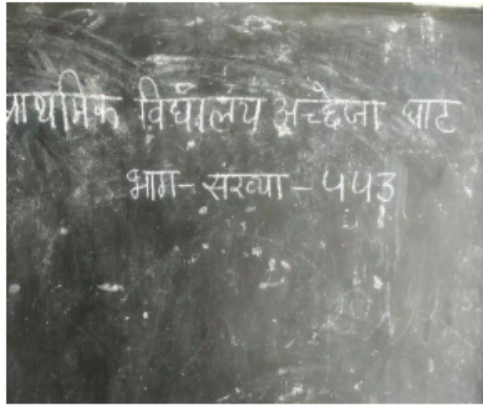 प्राथमिक विद्यालय अच्छेजा घाट
भाग-संख्या - ५५३